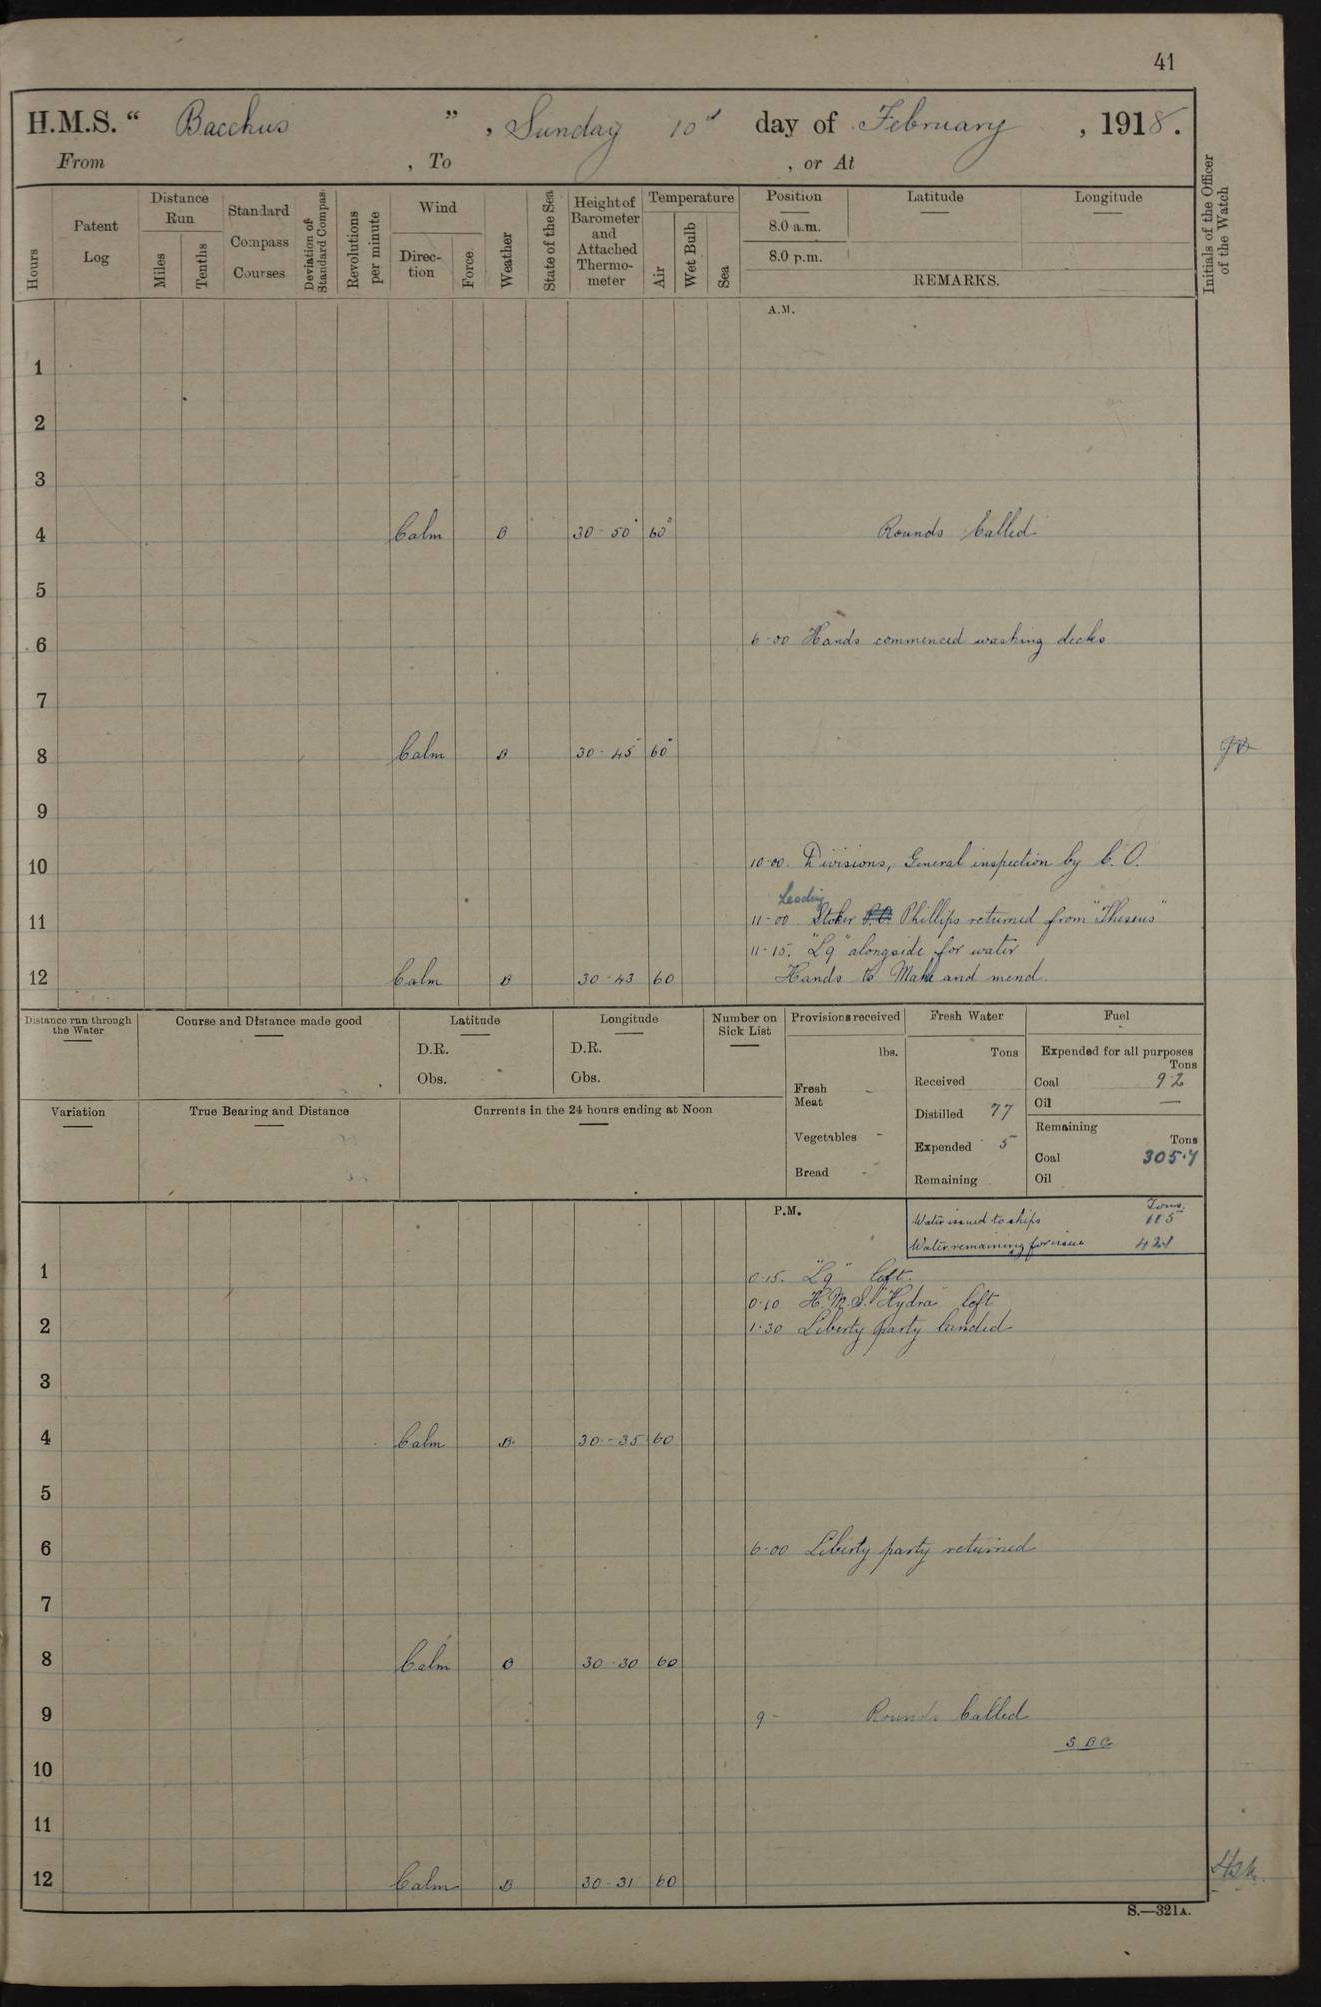 41
H.M.S. “ Bacchus ” , Sunday 10th day of February , 1918.
From , To , or At
Hours
Patent Log
Distance Run
Miles
Tenths
Standard Compass Courses
Deviation of Standard Compass
Revolutions per minute
Wind
Direction
Force
Weather
State of the Sea
Height of Barometer and Attached Thermometer
Temperature
Air
Wet Bulb
Sea
Position
8.0 a.m.
8.0 p.m.
Latitude
Longitude
REMARKS.
Initials of the Officer of the Watch
A.M.
1
2
3
4 Calm B 30-50 60° Rounds Called
5
6 6-00 Hands commenced washing decks
7
8 Calm B 30-45 60°
9
10 10-00. Divisions, General inspection by C.O.
Leading
11 11-00 Stoker P.O. Phillips returned from "Theseus"
11-15. "L9" alongside for water
12 Calm B 30-43 60 Hands to Make and mend.
Distance run through the Water
Course and Distance made good
Latitude
D.R.
Obs.
Longitude
D.R.
Obs.
Number on Sick List
Provisions received
lbs.
Fresh Meat -
Vegetables -
Bread -
Fresh Water
Tons
Received
Distilled 77
Expended 5
Remaining
Fuel
Expended for all purposes
Tons
Coal 9.2
Oil —
Remaining
Tons
Coal 305.7
Oil
Variation
True Bearing and Distance
Currents in the 24 hours ending at Noon
P.M.
Tons
Water issued to ships 115
Water remaining for issue 421
1 0-15. "L9" left.
0-10 H.M.S. "Hydra" left
2 1-30 Liberty party landed
3
4 Calm B 30-35 60
5
6 6-00 Liberty party returned
7
8 Calm B 30-30 60
9 9- Rounds Called
10
11
12 Calm B 30-31 60
S.—321A.